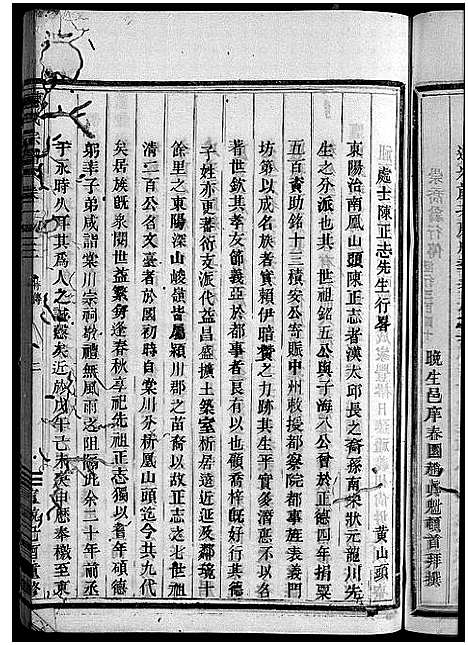 晚生邑庠春園趙貞魁頓首拜撰
處士陳正志先生行畧
黃山頭
東陽治南鳳山頭陳正志者漢太邱長之裔孫南宋狀元龍川先
生之分派也其世祖銘五公與子海八公曾於正德四年捐粟
五百賁助銘十三樹大公寄賑中州敕授都察院都事旌表義門
坊第以成名族者實賴伊暗賛之力跡其生平實多滛甚不以名
者世欽其孝友節義亞於都事者良有以也碩喬梓旣好行其德
子姓亦更蕃衍支派代益昌盛擴土築室析居遠近延及鄰境十
餘里之東陽深山峻嶺皆屬潁川郡之苗裔以故正志之七世祖
清二百公名文臺者於國初時自棠川分析鳳山頭迄今共九代
矣居族旣衆閱世益繁匆逢春秋享祀先祖正志獨以耆年碩德
躬率子弟咸詣棠川宗祠敬禮無風雨之阻隔此余二十年前丞
于永時久耳其為人之誠慤矣近於戊午己未庚申歷奉檄至東